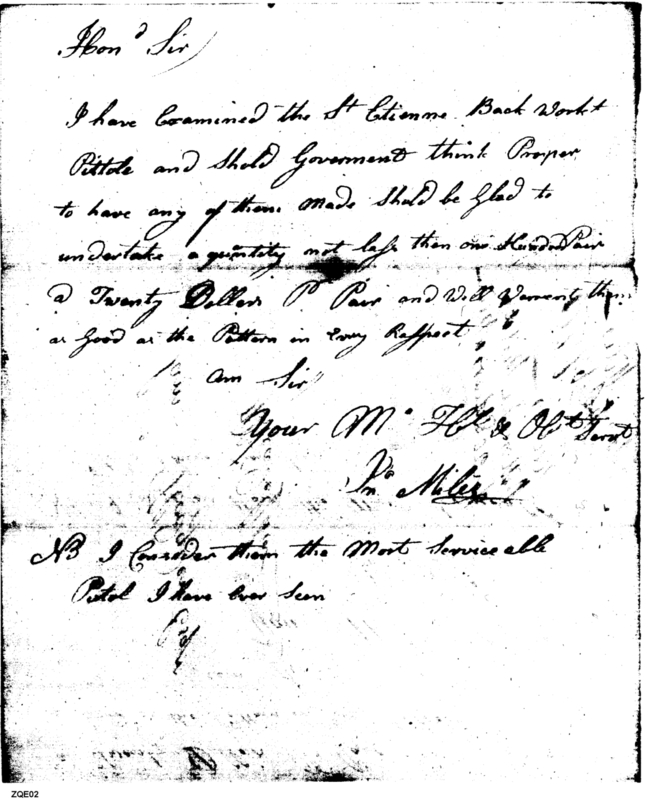 Hond Sir
I have Examined the St Etienne Back Workt
Pistole and Shold Goverment think Proper
to have any of them made Shold be Glad to
undertake a quntity not less than one Hundred Pair
a Twenty Dollers Pr Pair and Will Warrent them
as Good as the Pattern in Evry Respect
am Sir
Your Mo Hl & Obt Servt
Jno Miles
NB I Consider them the Most Serviceable
Pistol I have Ever Seen
ZQE02